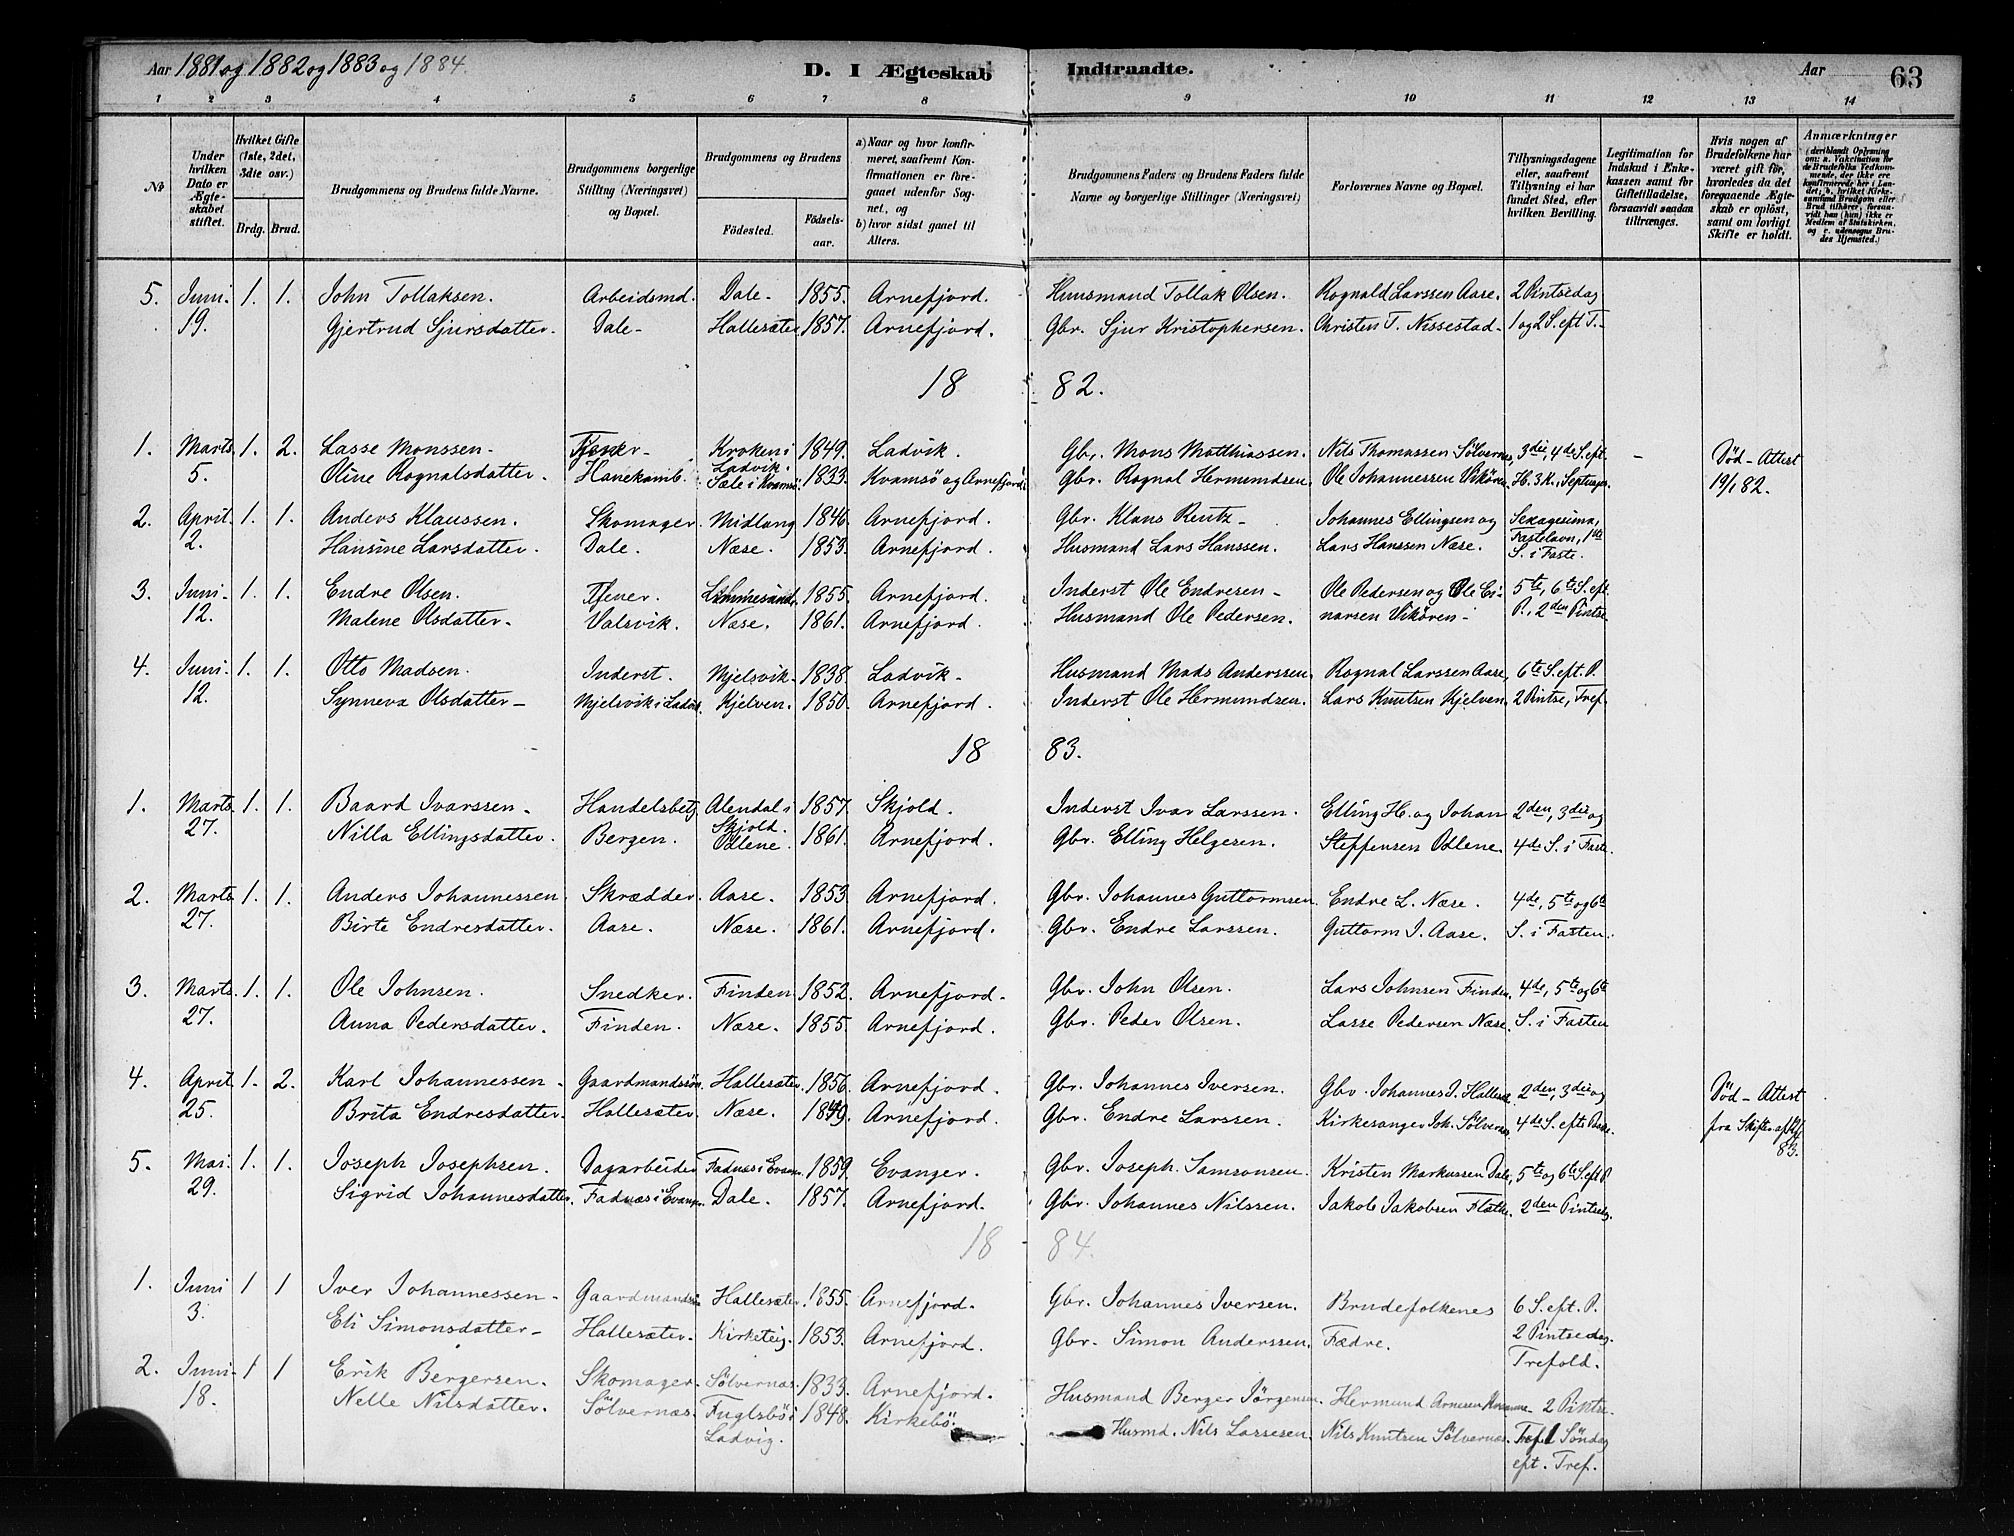 Aar 1881 og 1882 og 1883 og 1884. D. I Ægteskab Indtraadte. Aar 63
1 2 3 4 5 6 7 8 9 10 11 12 13 14
No
Under hvilken Dato er Ægteskabet stiftet.
Hvilket Gifte (1ste, 2det, 3dte osv.)
Brdg. Brud.
Brudgommens og Brudens fulde Navne.
Brudgommens borgerlige Stilling (Næringsvei) og Bopæl.
Brudgommens og Brudens
Fødested. Fødselsaar.
a) Naar og hvor konfirmeret, saafremt Konfirmationen er foregaaet udenfor Sognet, og
b) hvor sidst gaaet til Alters.
Brudgommens Faders og Brudens Faders fulde Navne og borgerlige Stillinger (Næringsvei)
Forlovernes Navne og Bopæl.
Tillysningsdagene eller, saafremt Tillysning ei har fundet Sted, efter hvilken Bevilling.
Legitimation for Indskud i Enkekassen samt for Giftetilladelse, forsaavidt saadan tiltrænges.
Hvis nogen af Brudefolkene har været gift før, hvorledes da det foregaaende Ægteskab er opløst, samt om lovligt Skifte er holdt.
Anmærkninger (deriblandt Oplysning om: a. Vakcination for de Brudefolks Vedkommende, der ikke ere konfirmerede her i Landet; b. hvilket Kirkesamfund Brudgom eller Brud tilhører, forsaavidt han (hun) ikke er Medlem af Statskirken, og c. udensogns Brudes Hjemsted.)
5. Juni 1. 1. John Tollaksen. Arbeidsmd. Dale. 1855. Arnefjord. Huusmand Tollak Olsen. Rognald Larssen Aase. 2 Pintsedag
19. Gjertrud Sjursdatter. Dale. Hallesæter 1857. Arnefjord. Gbr. Sjur Kristophersen. Christen T. Nissestad. 1 og 2 S. eft T.
1882.
1. Marts 1. 2. Lasse Monssen. Tjener. Kroken i 1849. Ladvik. Gbr. Mons Matthiassen. Nils Thomassen Sølvernes, 3die, 4de S. eft. - Død - Attest
Ladvik.
5. Oline Rognalsdatter. Hanekamb. Sæle i Kvamsø 1833. Kvamsø og Arnefjord. Gbr. Rognal Hermundsen. Ole Johannessen Vikøren. H. 3 K., Septuages. 19/1 82.
2. April 1. 1. Anders Klaussen. Skomager Midlang 1846. Arnefjord. Gbr. Klaus Rentz. Johannes Ellingsen og Sexagesima,
2. Hansine Larsdatter. Dale. Næse. 1853. Arnefjord. Husmand Lars Hanssen. Lars Hanssen Næse. Fastelavn, 1ste
S. i Faste.
3. Juni 1. 1. Endre Olsen. Tjener. 1855. Arnefjord. Inderst Ole Endresen. Ole Pedersen og Ole Ei- 5te, 6te S. eft.
12. Malene Olsdatter. Valsvik. Næse. 1861. Arnefjord. Husmand Ole Pedersen. narsen Vikøren. P., 2den Pintse
4. Juni 1. 1. Otto Madsen. Inderst. Mjelsvik. 1838. Ladvik. Husmand Mads Anderssen. Rognal Larssen Aase, 6te S. eft. P.
12. Synneva Olsdatter. Mjelsvik i Ladvik. Kjelven. 1850. Arnefjord. Inderst Ole Hermundsen. Lars Knutsen Kjelven. 2 Pintse, Tref.
1883.
1. Marts 1. 1. Baard Ivarssen. Handelsbetj. Alendal i 1857. Skjold. Inderst Ivar Larssen. Elling H. og Johan 2den, 3die og
Skjold.
27. Nilla Ellingsdatter. Bergen. Odlene. 1861. Arnefjord. Gbr. Elling Helgesen. Steffensen Odlene. 4de S. i Faste.
2. Marts 1. 1. Anders Johannessen. Skrædder. Aase. 1853. Arnefjord. Gbr. Johannes Guttormsen. Endre L. Næse. 4de, 5te og 6te
27. Birte Endresdatter. Aase. Næse. 1861. Arnefjord. Gbr. Endre Larssen. Guttorm J. Aase. S. i Fasten.
3. Marts 1. 1. Ole Johnsen. Snedker. Finden 1852. Arnefjord. Gbr. John Olsen. Lars Johnsen Finden. 4de, 5te og 6te
27. Anna Pedersdatter. Finden. Næse. 1855. Arnefjord. Gbr. Peder Olsen. Lasse Pedersen Næse. S. i Fasten
4. April 1. 2. Karl Johannessen. Gaardmandssøn. Hallesæter. 1856. Arnefjord. Gbr. Johannes Iversen. Gbr. Johannes I. Hallesæt. 2den, 3die og Død - Attest
25. Brita Endresdatter. Hallesæter. Næse. 1849. Arnefjord. Gbr. Endre Larssen. Kirkesanger Joh. Sølvernes. 4de S. eft Paaske. fra Skifter. af
83.
5. Mai 1. 1. Joseph Josephsen. Dagarbeider Fadnæs i Evanger. 1859. Evanger. Gbr. Joseph Samsonsen. Kristen Markussen Dale, 5te og 6te S. eft P
29. Sigrid Johannesdatter. Fadnæs i Evanger. Dale. 1857. Arnefjord. Gbr. Johannes Nilssen. Jakob Jakobsen Flæthe. 2den Pintsedg.
1884.
1. Juni 1 1 Iver Johannessen. Gaardmandssøn Hallesæter. 1855. Arnefjord. Gbr. Johannes Iversen. Brudefolkenes 6 S. eft. P.
3. Eli Simonsdatter. Hallesæter. Kirketeig. 1853. Arnefjord. Gbr. Simon Anderssen. Fædre. 2 Pintsedag.
Trefold.
2. Juni 1 1 Erik Bergersen. Skomager. Sølvernæs. 1833. Arnefjord. Husmand Berger Jörgensen. Hermund Arnesen 2 Pintse
18. Nelle Nilsdatter. Sølvernæs. Fuglsbø i 1848. Kirkebø. Husmd. Nils Lassesen. Nils Knutsen Sølvernæs. Tref 1 Søndag
Ladvig. eft. Tref.